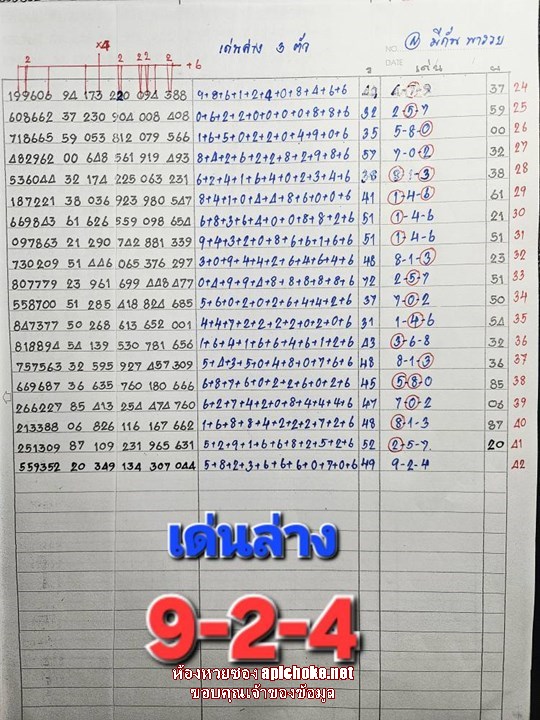 เด่นล่าง 3 ตัว NO. N มีกัน พารวย
DATE
x4
2 2 22 2 +6
จ เด่น ผ
199606 94 173 220 094 388 9+8+6+1+2+4+0+8+4+6+6 37 24
608662 37 230 904 008 408 0+6+2+2+0+0+0+0+8+8+6 32 2-5-7 59 25
718665 59 053 812 079 566 1+6+5+0+2+2+0+4+9+0+6 35 5-8-0 00 26
482962 00 648 561 919 493 8+4+2+6+2+2+8+2+9+8+6 57 7-0-2 32 27
536044 32 174 225 063 231 6+2+4+1+6+4+0+2+3+4+6 38 8-1-3 38 28
187221 38 036 923 980 547 8+4+1+0+4+4+8+6+0+0+6 41 1-4-6 61 29
669843 61 626 559 098 654 6+8+3+6+4+0+0+8+8+2+6 51 1-4-6 21 30
097863 21 290 742 881 339 9+4+3+2+0+8+6+6+1+6+6 51 1-4-6 51 31
730209 51 446 065 376 297 3+0+9+4+4+2+6+4+6+4+6 48 8-1-3 23 32
807779 23 961 699 448 477 0+4+9+9+4+8+8+8+8+8+6 72 2-5-7 51 33
558700 51 285 418 824 685 5+6+0+2+0+2+6+4+4+2+6 37 7-0-2 50 34
847377 50 268 613 652 001 4+4+7+2+2+2+2+0+2+0+6 31 1-4-6 54 35
818894 54 139 530 781 656 1+6+4+1+6+6+4+6+1+2+6 43 3-6-8 32 36
757563 32 595 927 457 309 5+4+3+5+0+4+8+0+7+6+6 48 8-1-3 36 37
669687 36 635 760 180 666 6+8+7+6+0+2+2+6+0+2+6 45 5-8-0 85 38
266227 85 413 254 474 760 6+2+7+4+2+0+8+4+4+4+6 47 7-0-2 06 39
213388 06 826 116 167 662 1+6+8+8+4+2+2+2+7+2+6 48 8-1-3 87 40
251309 87 109 231 965 631 5+2+9+1+6+6+8+2+5+2+6 52 2-5-7 20 41
559352 20 349 134 307 044 5+8+2+3+6+6+6+0+7+0+6 49 9-2-4 42
เด่นล่าง
9-2-4
ห้องหวยซอง apichoke.net
ขอบคุณเจ้าของข้อมูล